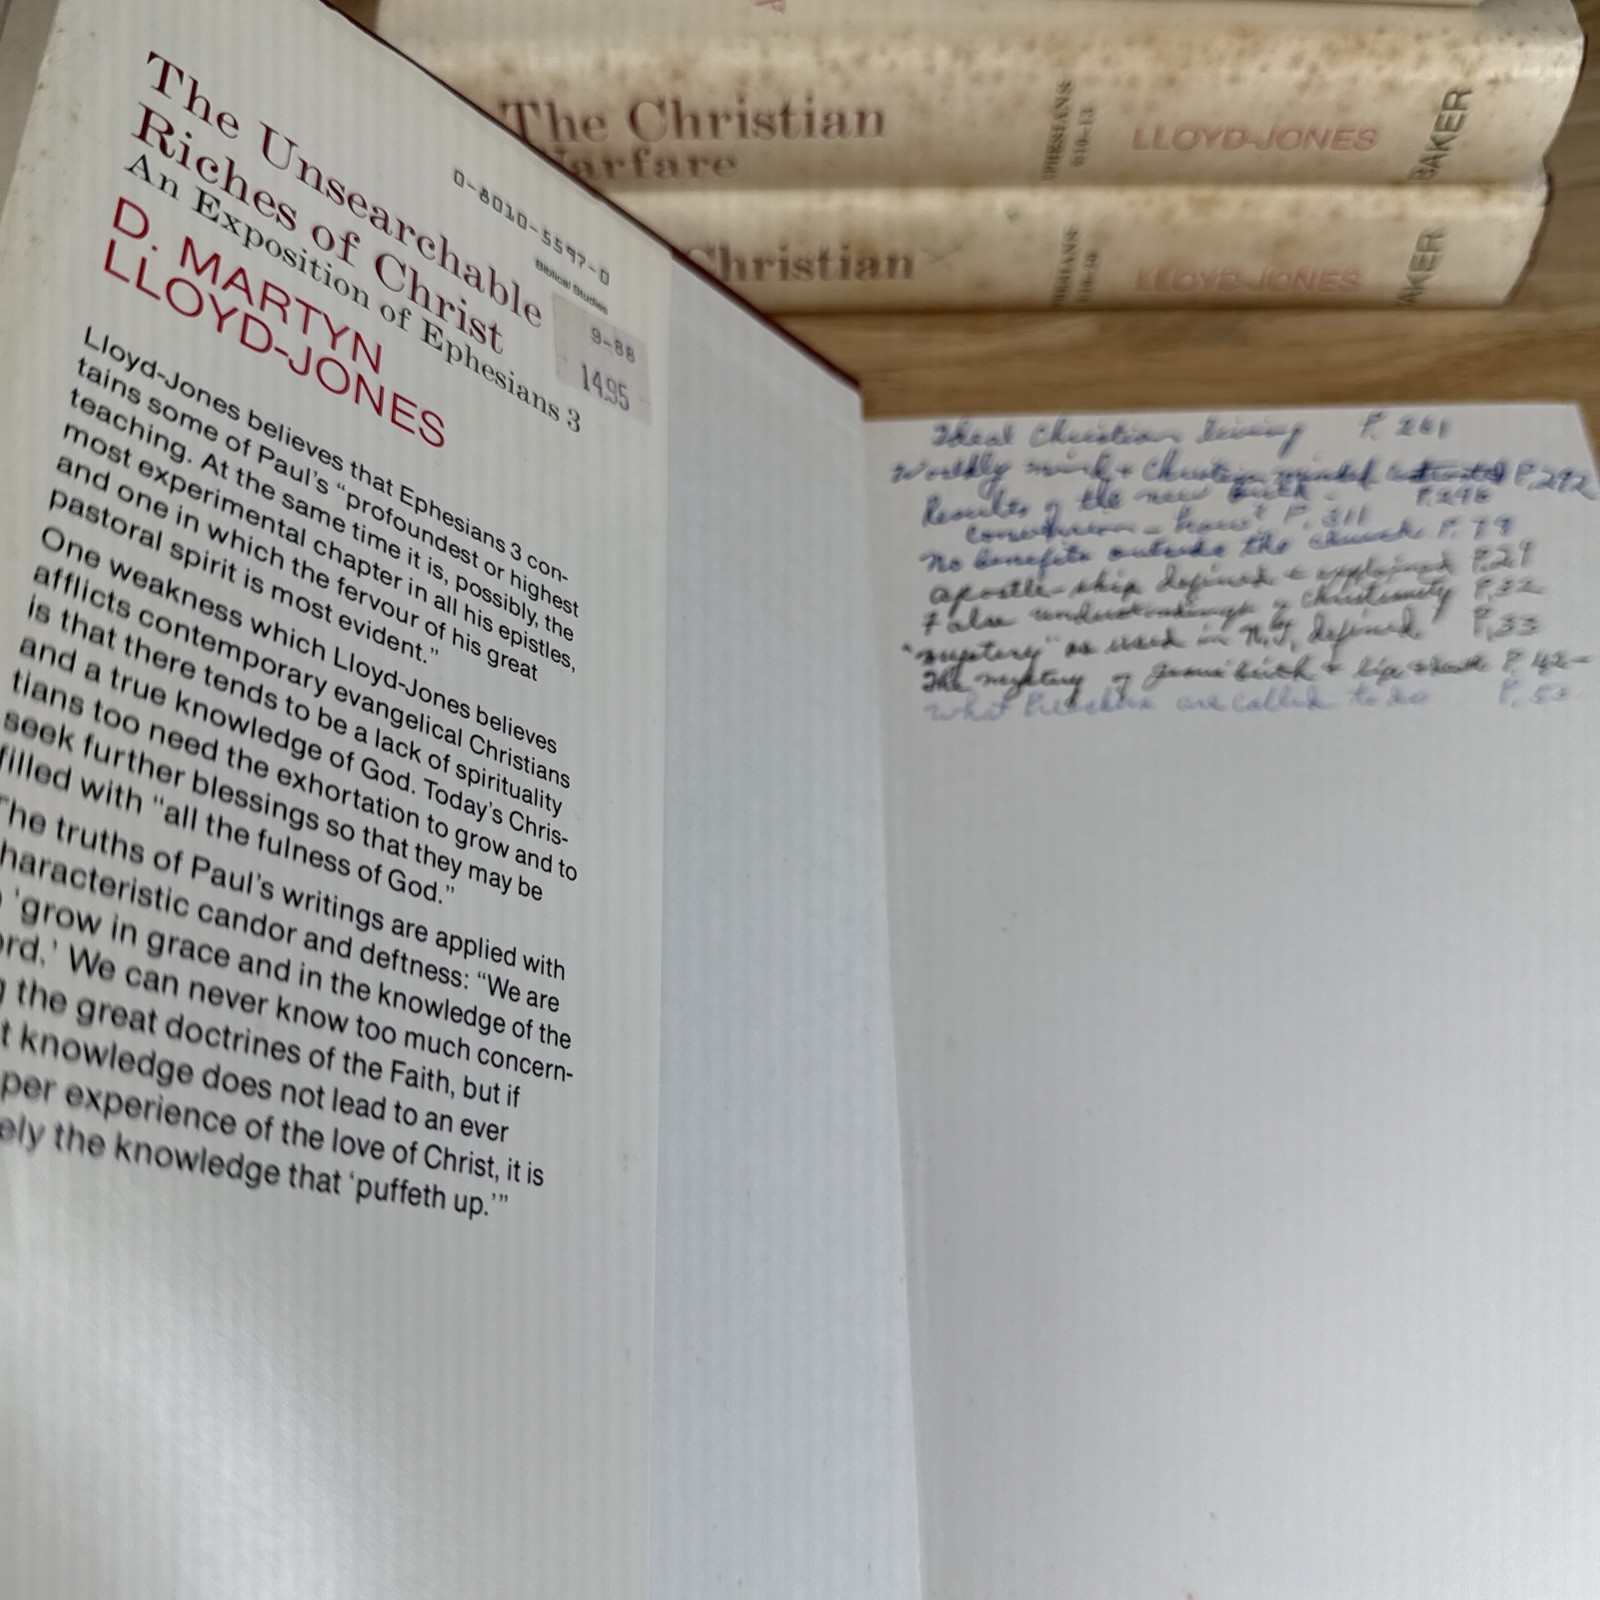 The Unsearchable
Riches of Christ
An Exposition of Ephesians 3
D. MARTYN
LLOYD-JONES
0-8010-5597-0
Biblical Studies
9-88
14.95
Lloyd-Jones believes that Ephesians 3 con-
tains some of Paul's "profoundest or highest
teaching. At the same time it is, possibly, the
most experimental chapter in all his epistles,
and one in which the fervour of his great
pastoral spirit is most evident."
One weakness which Lloyd-Jones believes
afflicts contemporary evangelical Christians
is that there tends to be a lack of spirituality
and a true knowledge of God. Today's Chris-
tians too need the exhortation to grow and to
seek further blessings so that they may be
filled with "all the fulness of God."
The truths of Paul's writings are applied with
haracteristic candor and deftness: "We are
'grow in grace and in the knowledge of the
ord.' We can never know too much concern-
g the great doctrines of the Faith, but if
t knowledge does not lead to an ever
per experience of the love of Christ, it is
ely the knowledge that 'puffeth up.'"
The Christian
Warfare
EPHESIANS
6:10-13
LLOYD-JONES
BAKER
Christian
LLOYD-JONES
BAKER
Ideal Christian living P. 261
Worldly mind + Christian mind P. 292
Results of the new birth - P. 296
conversion - P. 311
No benefits outside the church P. 79
apostle-ship defined + explained P. 29
+ also understandings of Christianity P. 32
"mystery" as used in N.T. defined P. 33
The mystery of Jesus' birth + life + death P. 42-
What Preachers are called to do